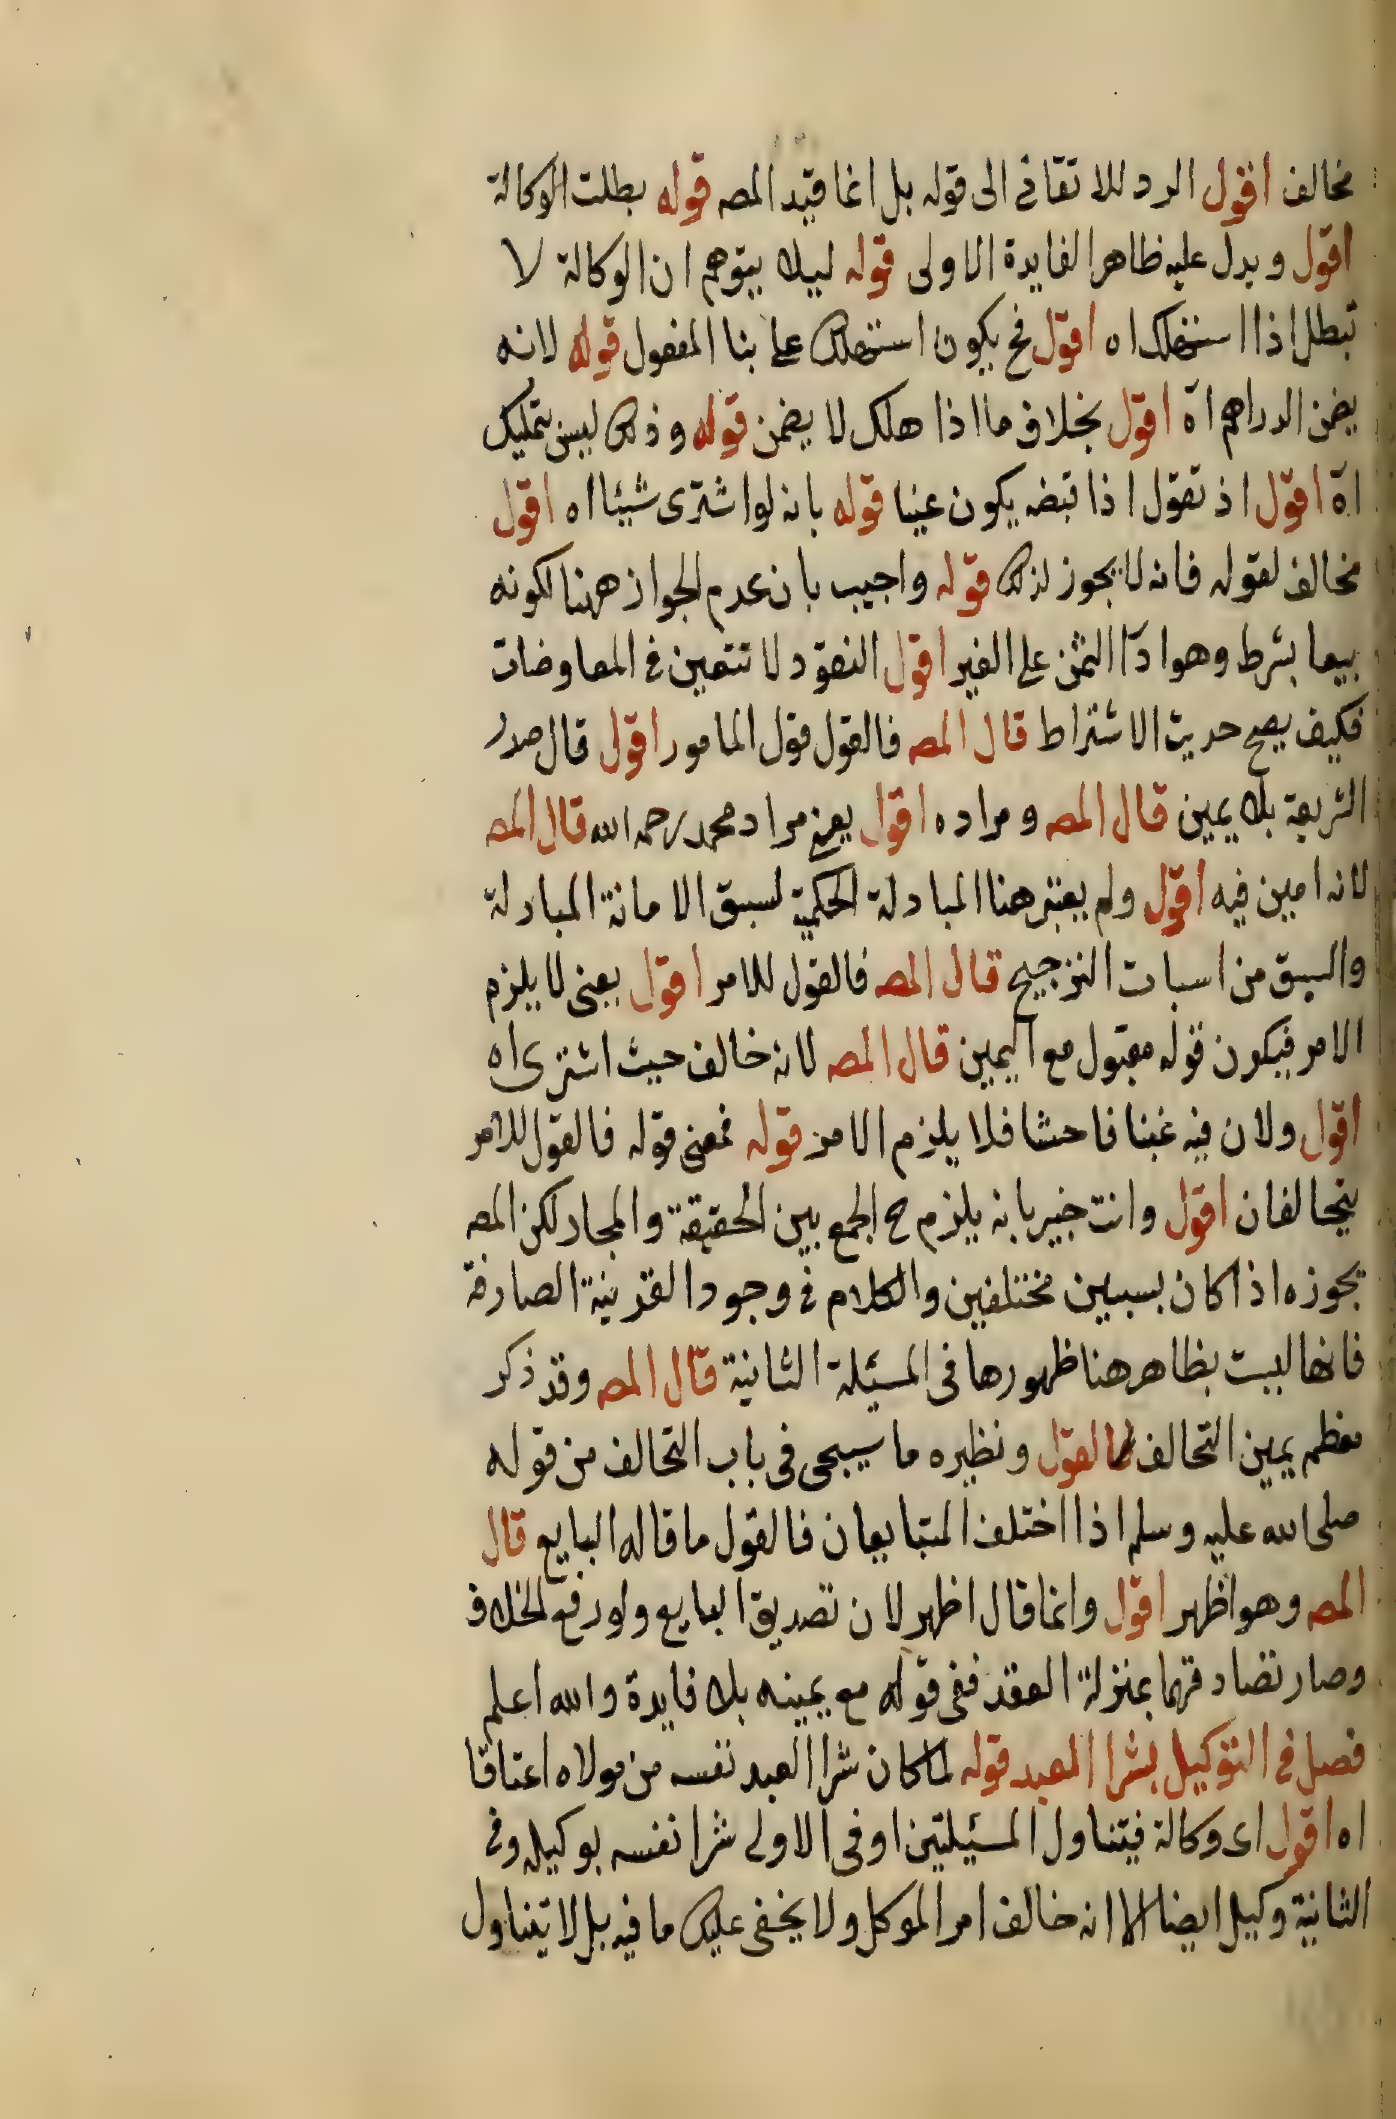 مخالف اقول الرد للاتقانى الى قوله بل انما قيد المصه قوله بطلت الوكالة
اقول ويدل عليه ظاهر الفايدة الاولى قوله ليلا يتوهم ان الوكالة لا
تبطل اذا استهلك اه اقول فح يكون استهلك على بنا المفعول قوله لانه
يضمن الدراهم اه اقول بخلاف ما اذا هلك لا يضمن قوله وذلك ليس بتمليك
اه اقول اذ تقول اذا قبضه يكون عينا قوله بانه لو اشترى شيئا اه اقول
مخالف لقوله فانه لا يجوز لذلك قوله واجيب بان عدم الجواز ههنا لكونه
بيعا بشرط وهو ادآ الثمن على الغير اقول النقود لا تتعين فى المعاوضات
فكيف يصح حديث الاشتراط قال المصه فالقول قول المامور اقول قال صدر
الشريعة بلا يمين قال المصه ومراده اقول يعنى مراد محمد رحمه الله قال المصه
لانه امين فيه اقول ولم يعتبر هنا المبادلة الحكمية لسبق الامانة المبادلة
والسبق من اسبات الترجيح قال المصه فالقول للامر اقول يعنى لا يلزم
الامر فيكون قوله مقبول مع اليمين قال المصه لانه خالف حيث اشترى اه
اقول ولان فيه غبنا فاحشا فلا يلزم الامر قوله فمعنى قوله فالقول للامر
يتحالفان اقول وانت خبير بانه يلزم ح الجمع بين الحقيقة والمجاز لكن المصه
يجوزه اذا كان بسببين مختلفين والكلام فى وجود القرينة الصارفة
فانها ليست بظاهر هنا ظهورها فى المسئلة الثانية قال المصه وقد ذكر
معظم يمين التحالف اقول ونظيره ما سيجى فى باب التحالف من قوله
صلى الله عليه وسلم اذا اختلف المتبايعان فالقول ما قاله البايع قال
المصه وهو اظهر اقول وانما قال اظهر لان تصديق البايع ولو رفع الخلاف
وصار تصادقهما بمنزلة العقد ففى قوله مع يمينه بلا فايدة والله اعلم
فصل فى التوكيل بشرا العبد قوله لما كان شرا العبد نفسه من مولاه اعتاقا
اه اقول اى وكالة فيتناول المسئلتين او فى الاولى شرا نفسه بوكيله وفى
الثانية وكيل ايضا الا انه خالف امر الموكل ولا يخفى عليك ما فيه بل لا يتناول